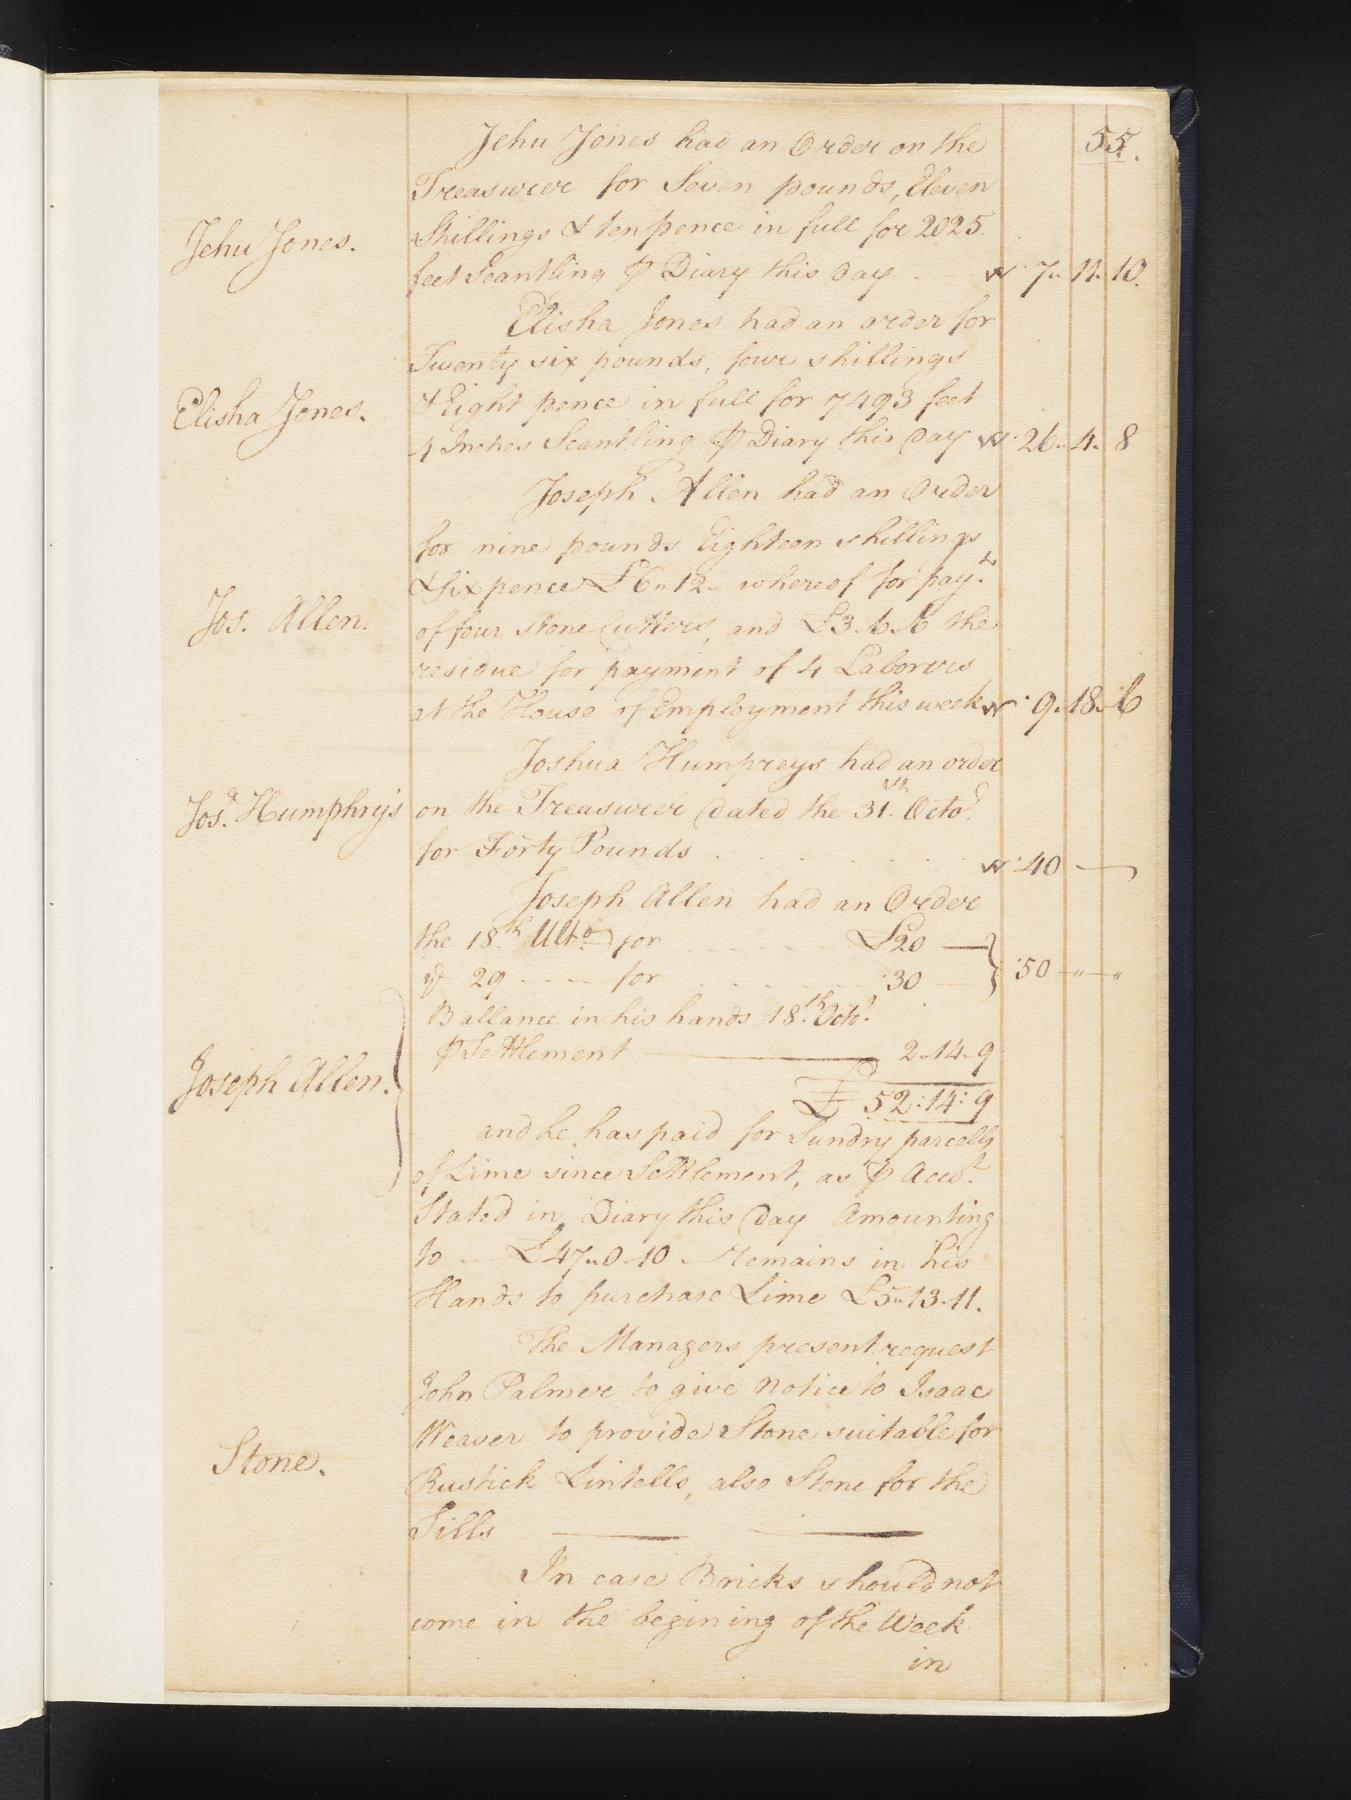 55.
Jehu Jones had an Order on the
Treasurer for Seven pounds, Eleven
Jehu Jones.
Shillings & ten pence in full for 2025
feet Scantling ⅌ Diary this Day 7 " 11 " 10.
Elisha Jones had an order for
Twenty six pounds, four shillings
Elisha Jones.
& Eight pence in full for 7493 feet
4 Inches Scantling ⅌ Diary this Day 26 " 4 " 8
Joseph Allen had an Order
for nine pounds Eighteen shillings
& six pence £6 " 12 - whereof for pay.t
Jos. Allen.
of four stone Cutters, and £3.6.6 the
residue for payment of 4 Laborers
at the House of Employment this week 9 " 18 " 6
Joshua Humpreys had an order
Jos.a Humphrys
on the Treasurer dated the 31.st Octo.r
for Forty Pounds . . . . . . . 40 —
Joseph Allen had an Order
the 18.th Ult.o for £20 —
29 ---- for 30 — 50 — " — "
Ballance in his hands 18.th Octo.r
⅌ Settlement — 2 - 14 - 9
Joseph Allen.
£ 52 : 14 : 9
and he has paid for Sundry parcells
of Lime since Settlement, as ⅌ Acco.t
Stated in Diary this Day Amounting
to — £47 " 0 - 10 - remains in his
Hands to purchase Lime £5 " 13 - 11.
The Managers present request
John Palmer to give Notice to Isaac
Weaver to provide Stone suitable for
Stone.
Rustick Lintells, also Stone for the
Sills — —
In case Bricks should not
come in the begining of the Week
in